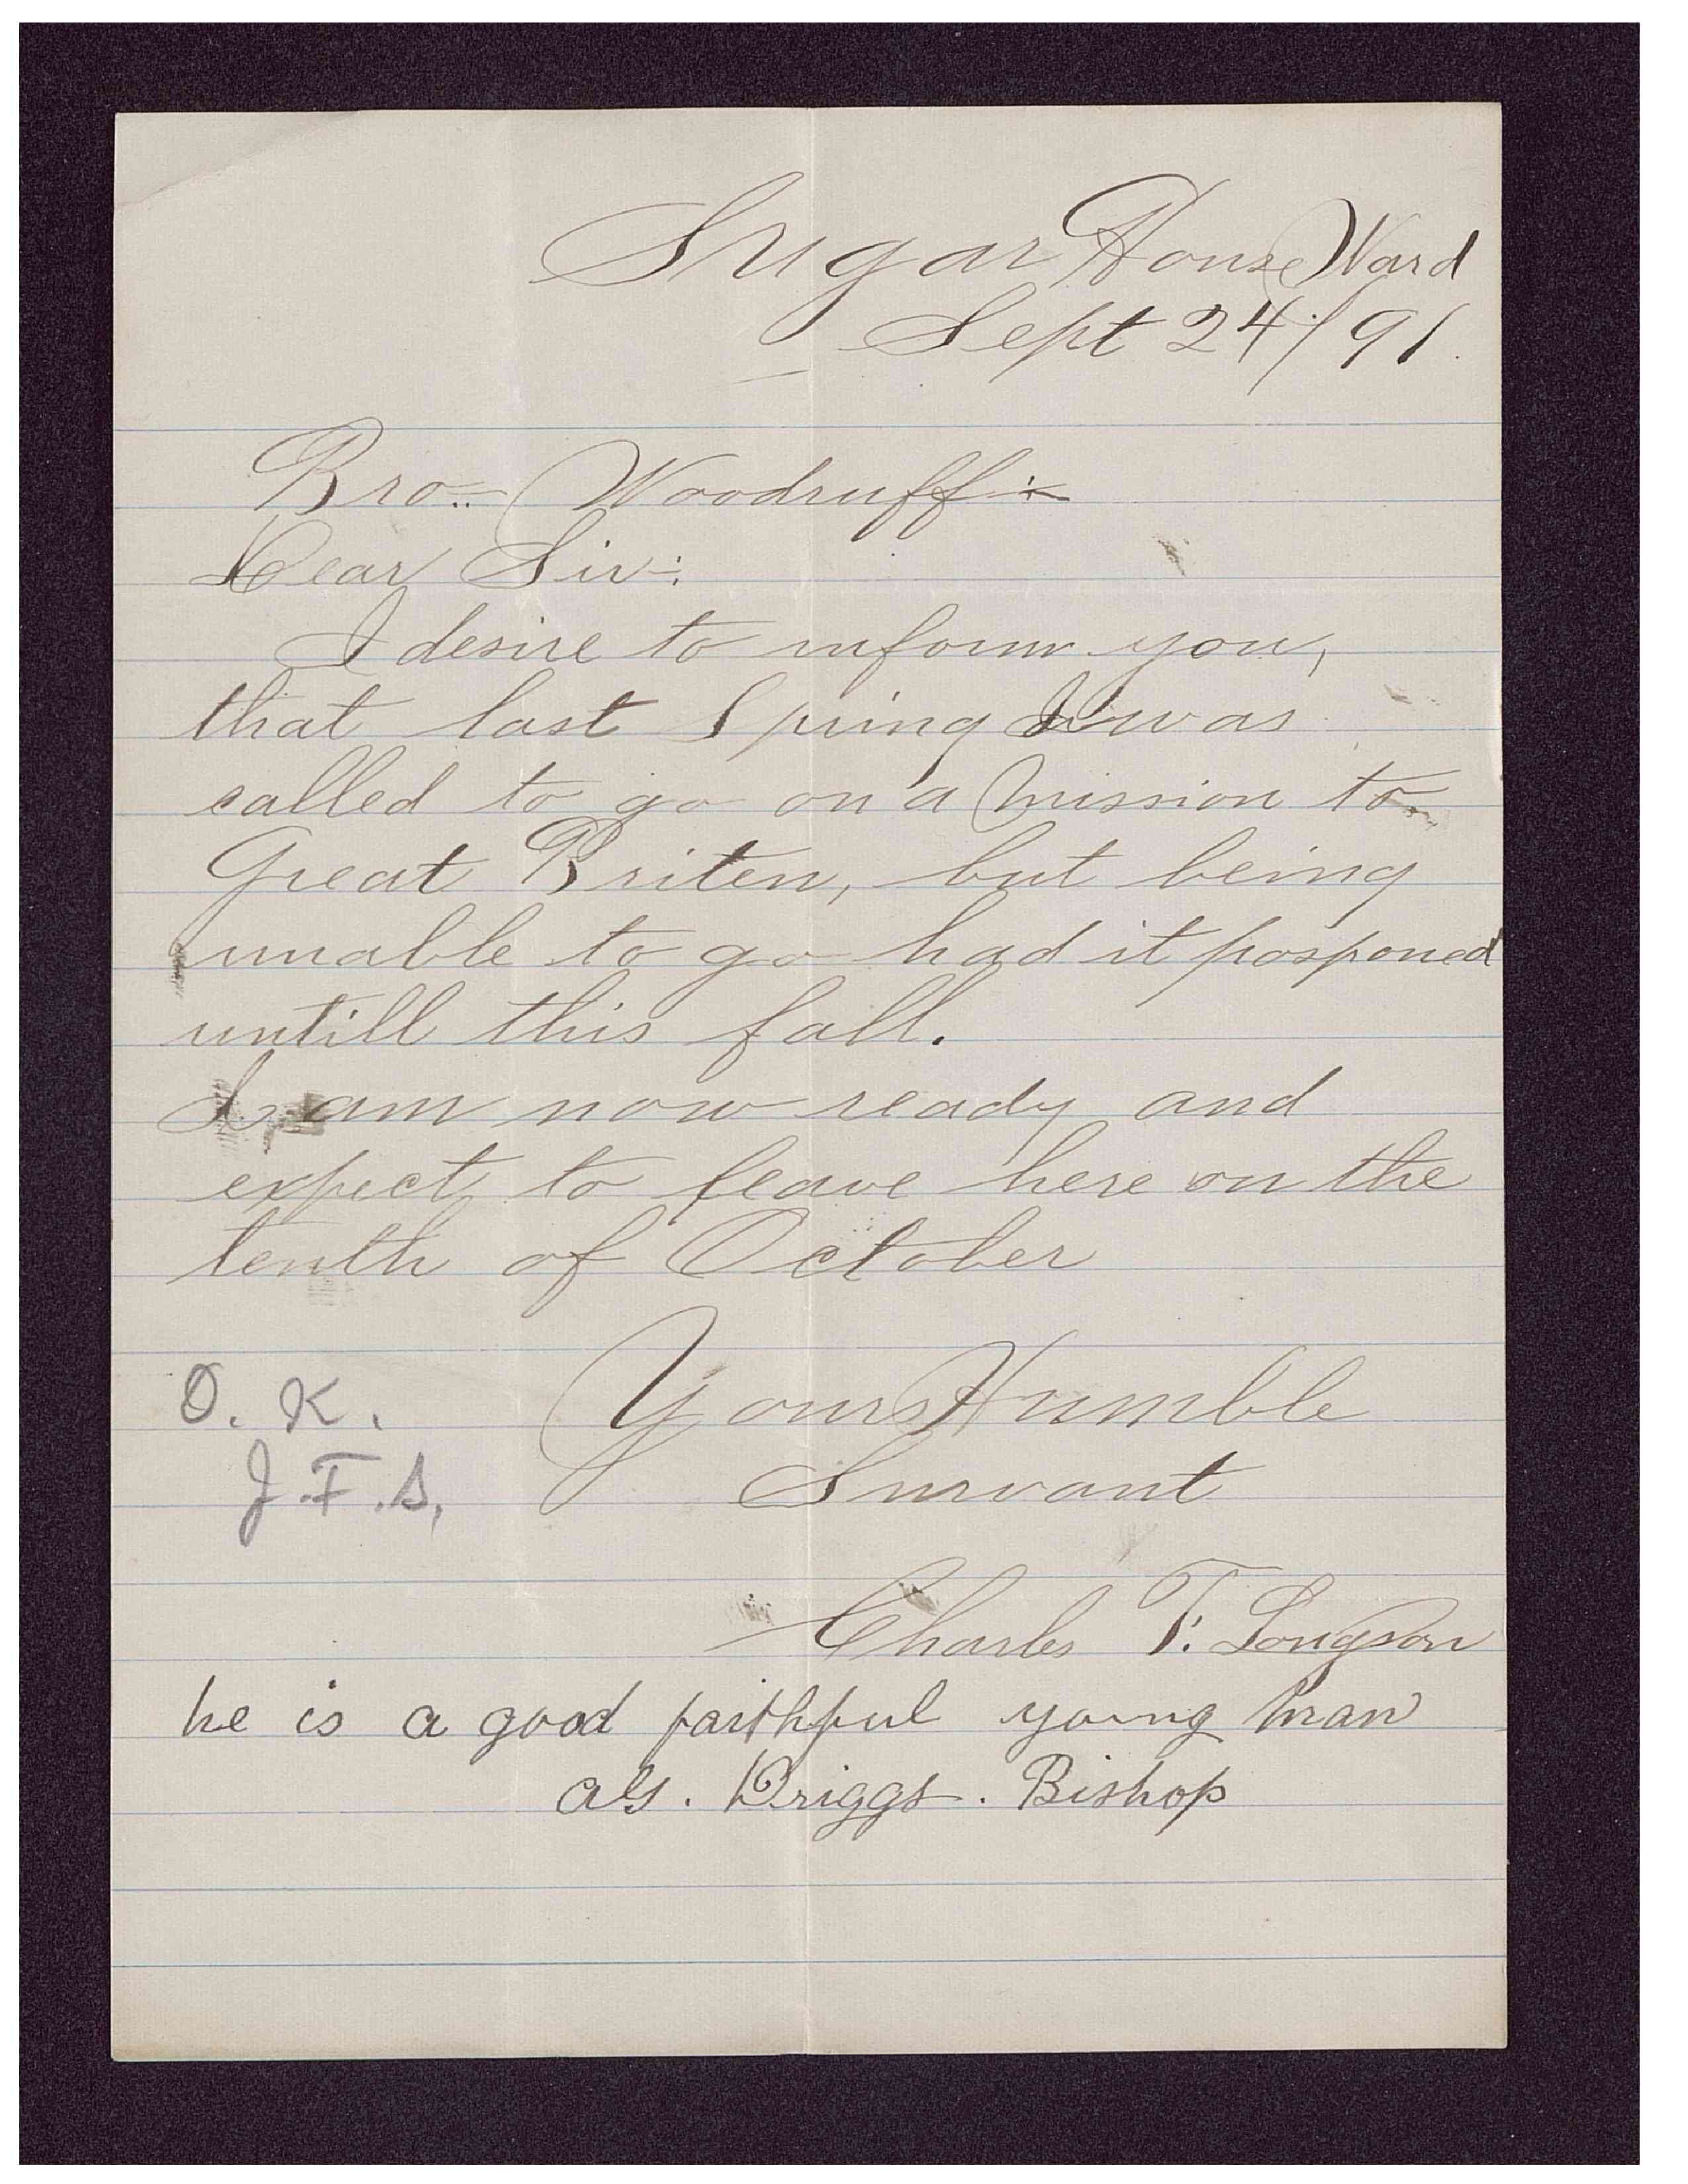 Sugar House Ward
Sept 24/91.
Bro.. Woodruff:
Dear Sir:
I desire to inform you,
that last Spring I was
called to go on a Mission to
Great Briten, but being
unable to go had it posponed
untill this fall.
I am now ready and
expect to leave here on the
tenth of October
O. K.
J. F. S.
Yours Humble
Survant
Charles T. Longson
he is a good faithful young man
Briggs. Bishop